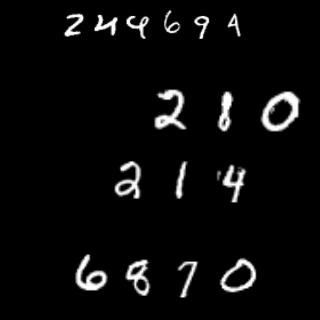 24469A
280
214
6870